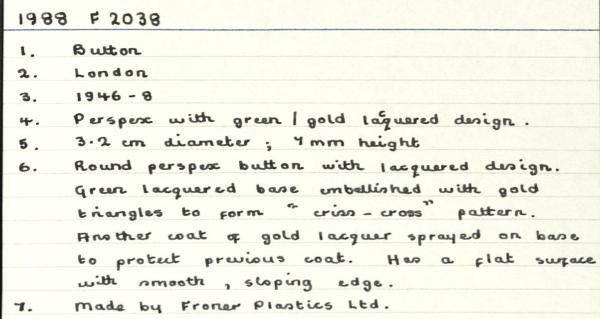 1988 F 2038
1. Button
2. London
3. 1946-8
4. Perspex with green / gold lacquered design.
5. 3.2 cm diameter; 7mm height
6. Round perspex button with lacquered design.
Green lacquered base embellished with gold
triangles to form "criss-cross" pattern.
Another coat of gold lacquer sprayed on base
to protect previous coat. Has a flat surface
with smooth, sloping edge.
7. Made by Froner Plastics Ltd.